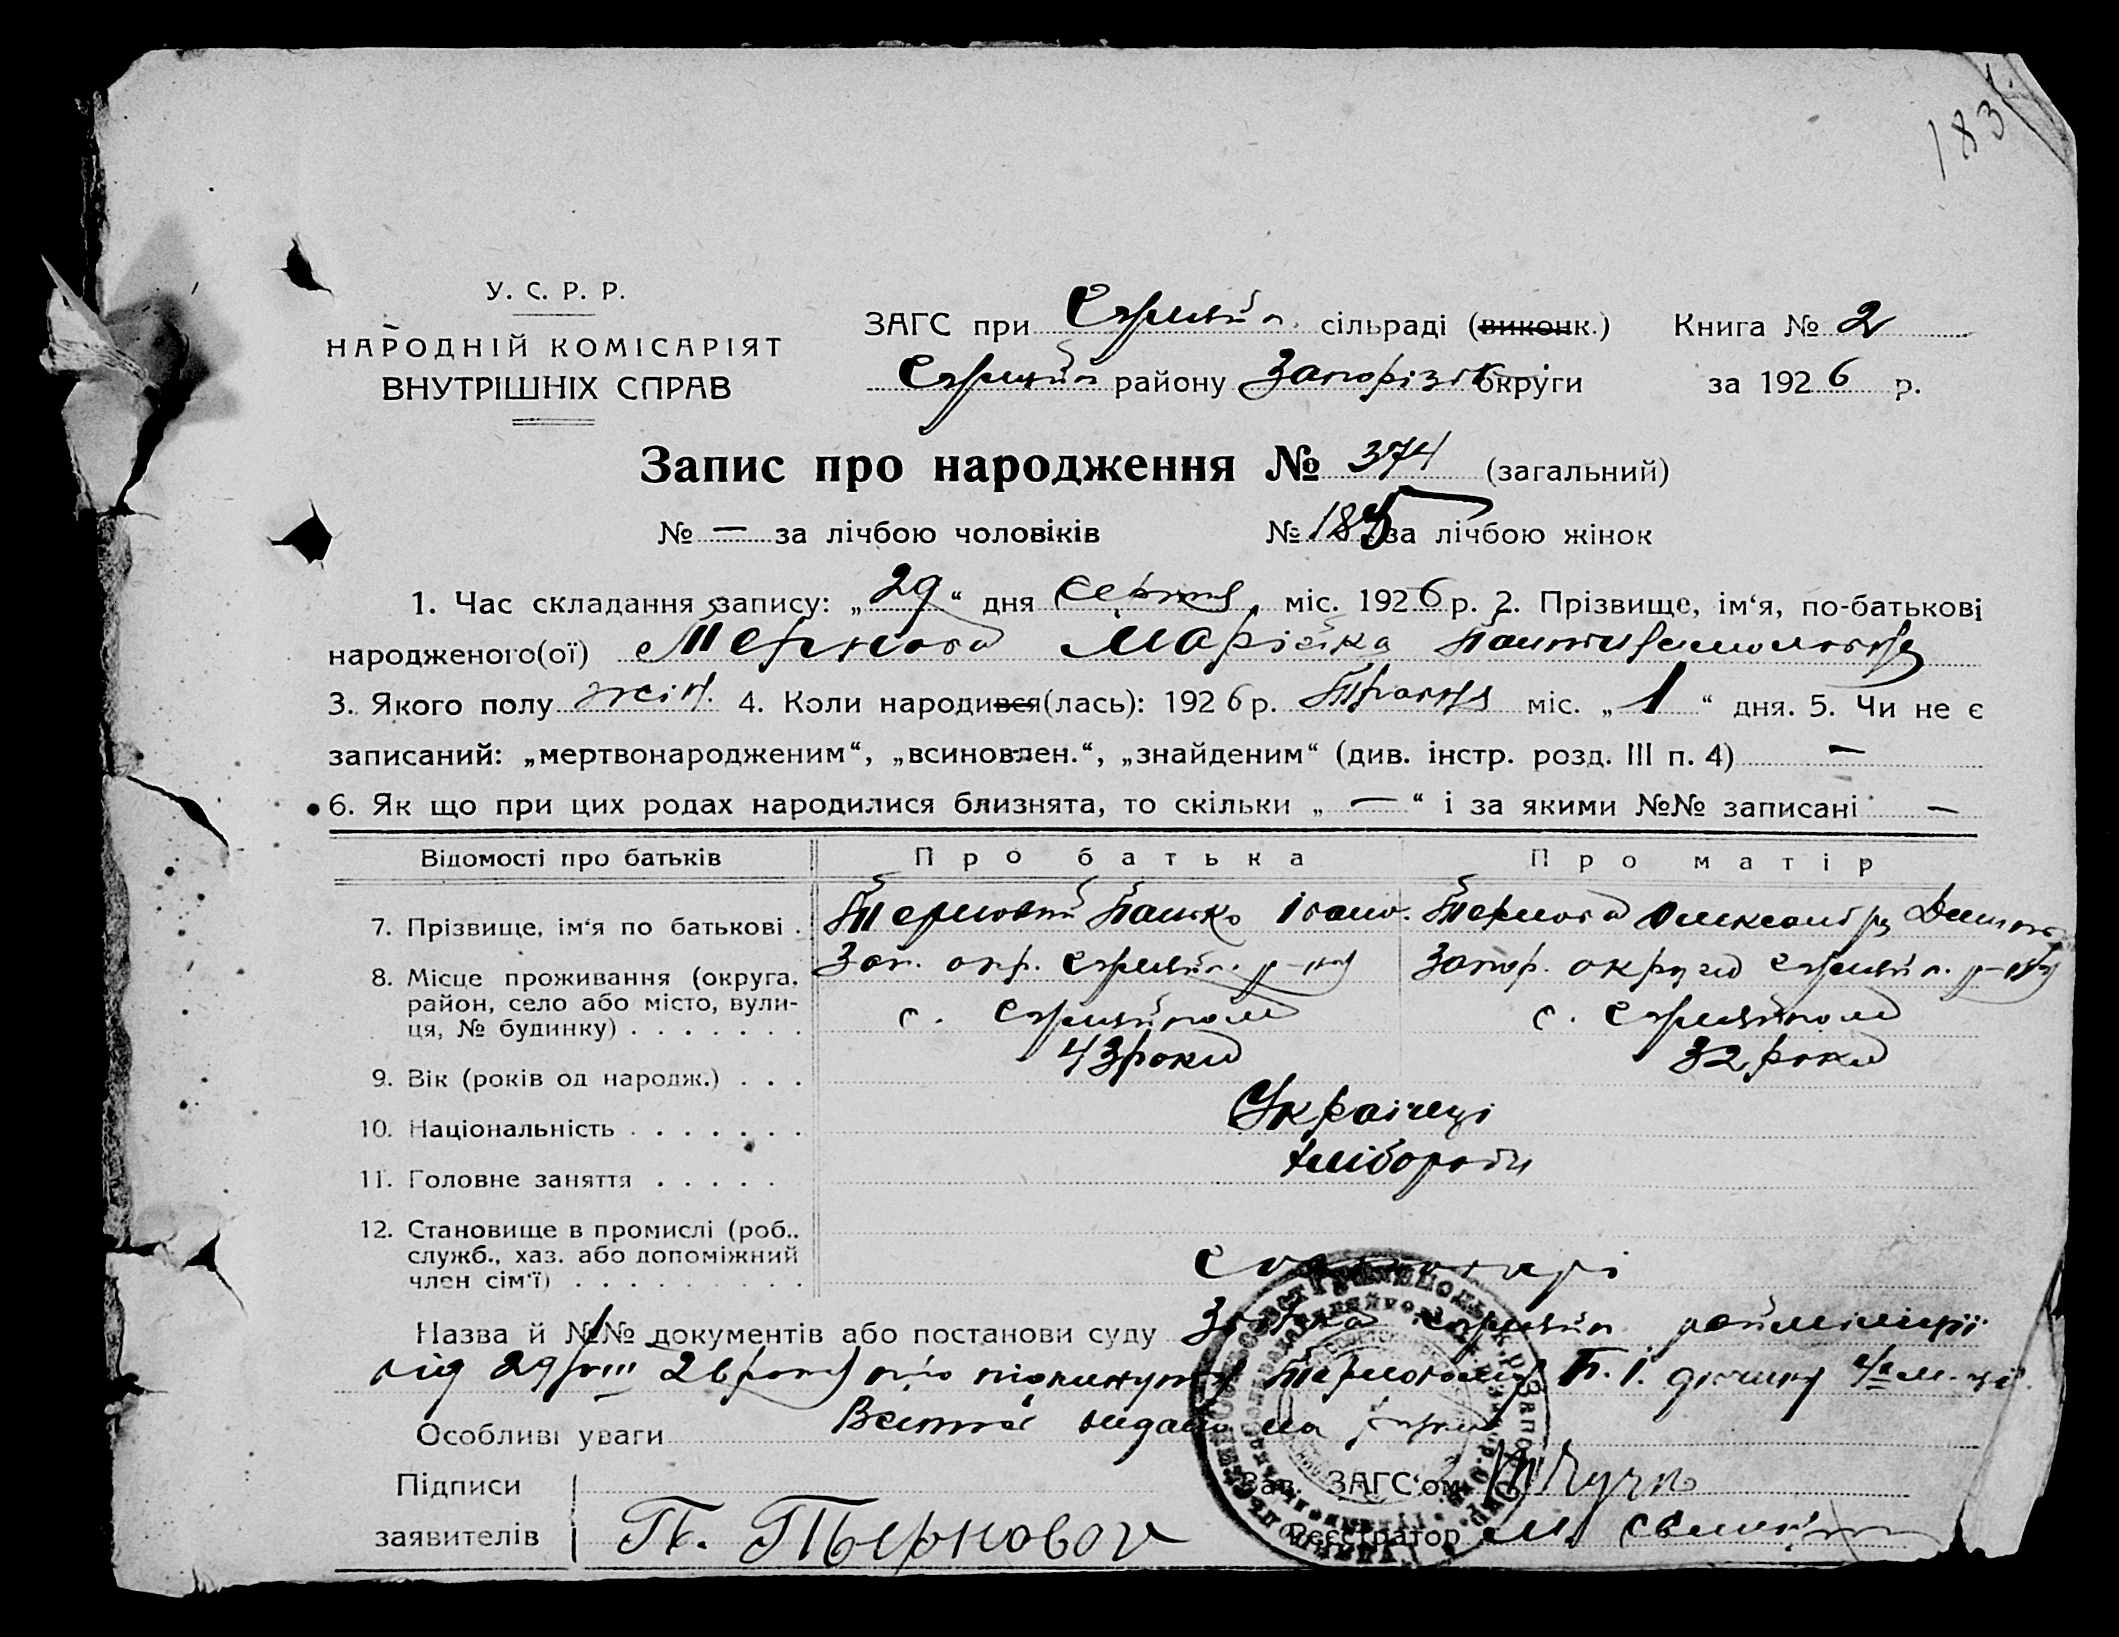 183
У. С. Р. Р.
НАРОДНІЙ КОМІСАРІЯТ
ВНУТРІШНІХ СПРАВ
ЗАГС при сільраді (виконк.) Книга № 2
району Запорізьк округи за 1926 р.
Запис про народження № 374 (загальний)
№ — за лічбою чоловіків № 185 за лічбою жінок
1. Час складання запису: „29“ дня серпня міс. 1926 р. 2. Прізвище, ім‘я, по-батькові
народженого(ої) Тернова Марійка
3. Якого полу жін. 4. Коли народився(лась): 1926 р. Травня міс. „1“ дня. 5. Чи не є
записаний: „мертвонародженим“, „всиновлен.“, „знайденим“ (див. інстр. розд. III п. 4) —
6. Як що при цих родах народилися близнята, то скільки „—“ і за якими №№ записані —
Відомості про батьків Про батька Про матір
7. Прізвище, ім‘я по батькові . Терновий Панько Івано. Тернова Олександра
8. Місце проживання (округа, Зап. окр. р-ну Запор. округи р-ну
район, село або місто, вули- с. с.
ця, № будинку) . . . . . . .
9. Вік (років од народж.) . . . 43 роки 32 роки
10. Національність . . . . . . . Українці
11. Головне заняття . . . . . Хлібороби
12. Становище в промислі (роб..
служб., хаз. або допоміжний
член сім‘ї) . . . . . . . . .
Назва й №№ документів або постанови суду райміліції
від 29/VIII 26 року про Терновому П. І. дитину 4х м-ці
Особливі уваги видано на руки
Підписи Зав. ЗАГС‘ом
заявителів П. Терновой Реєстратор